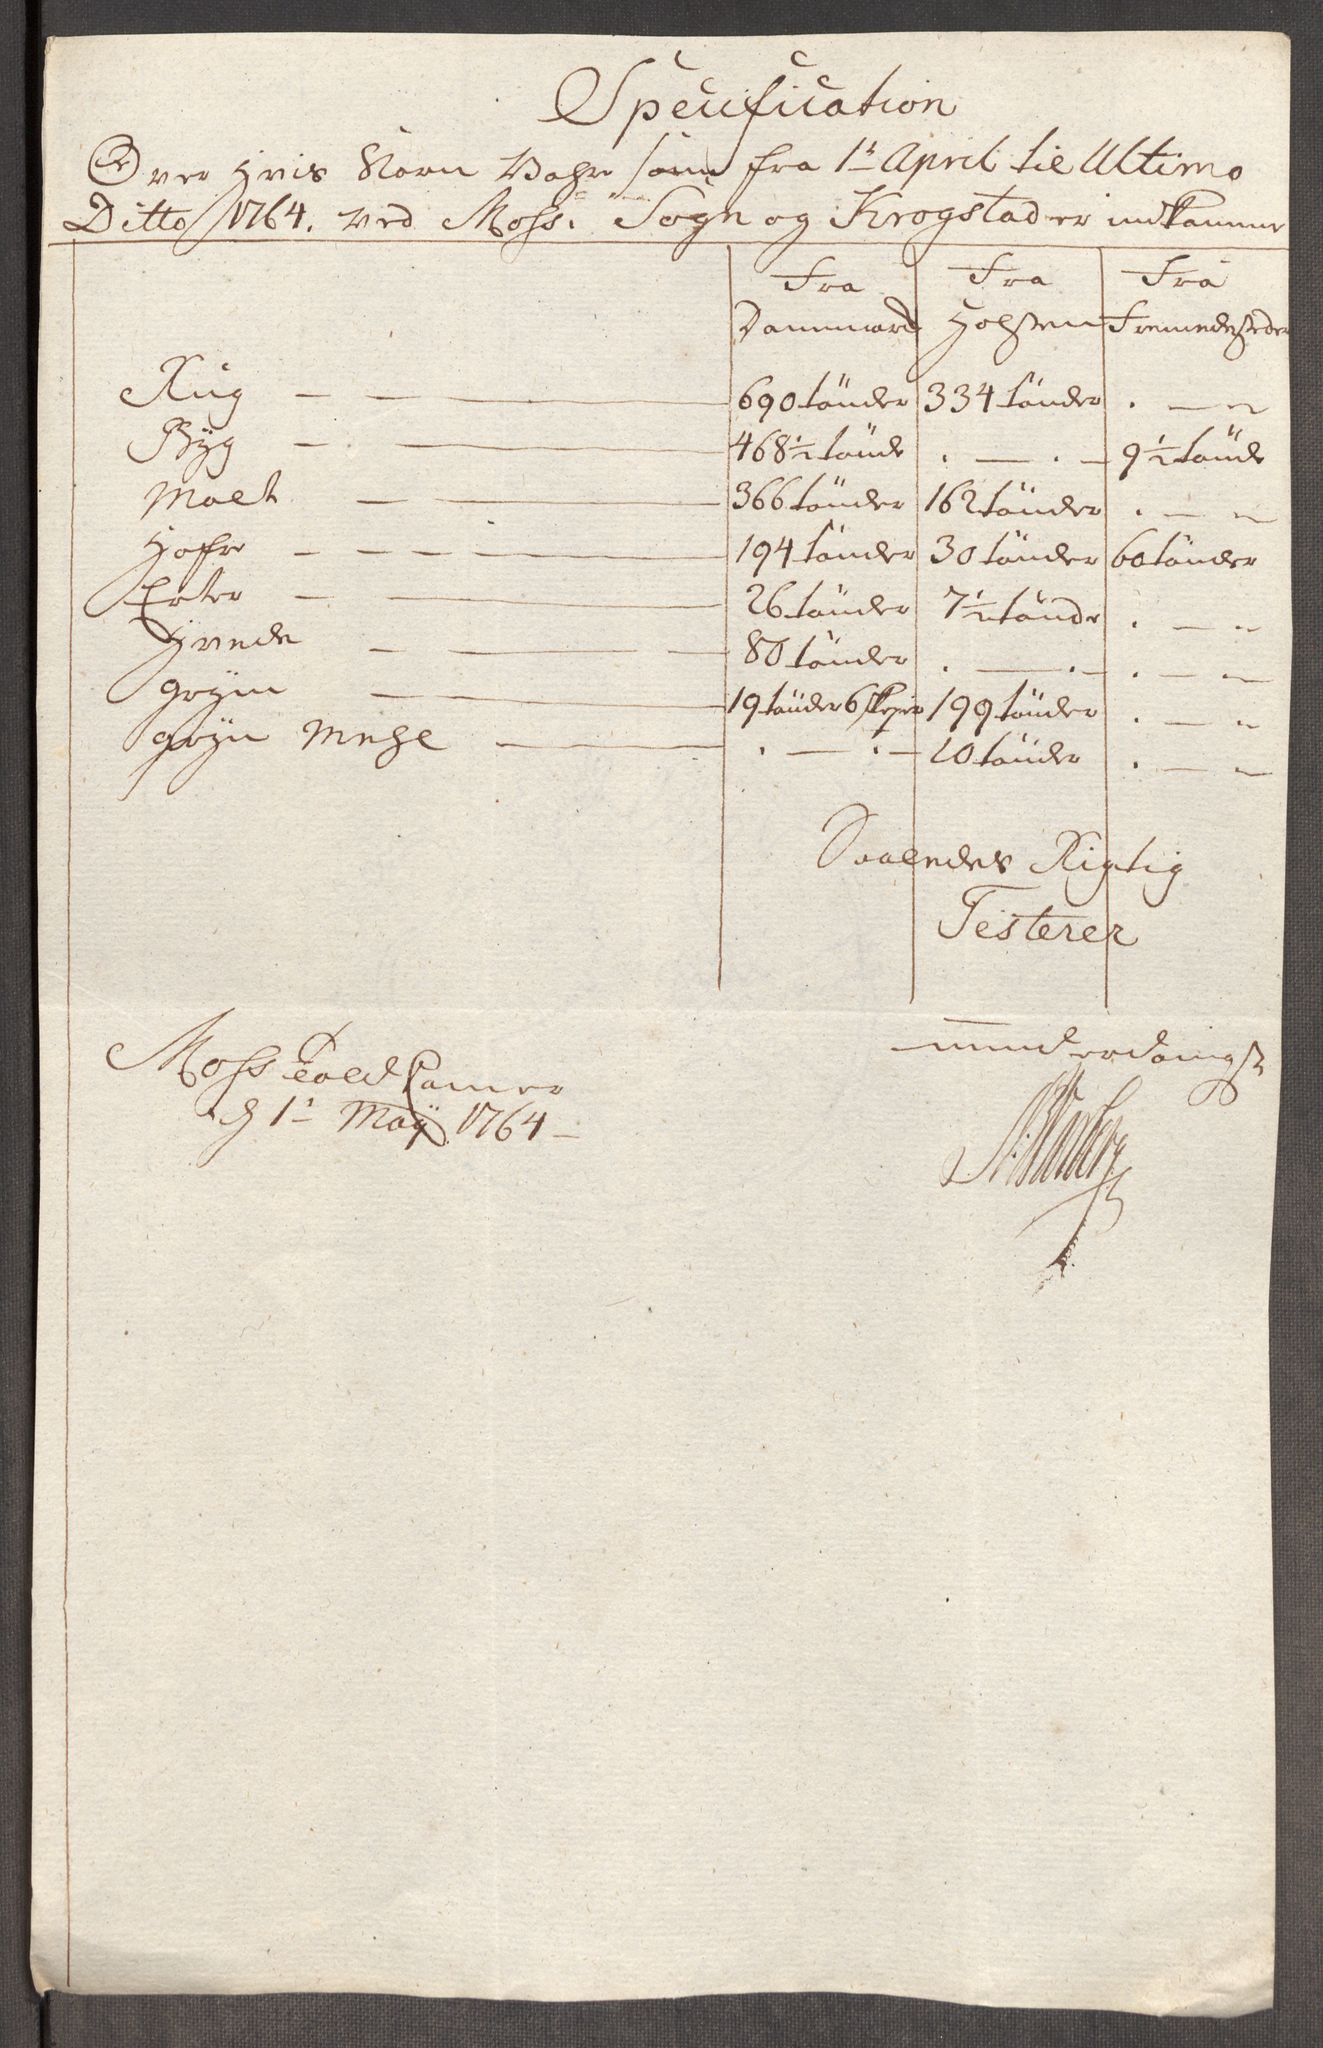 Specification
Over Hvis Korn Vahre som fra 1ᵗ April til Ultimo
Ditto 1764. ved Moss. Sogn og Krogstad er indkommen
Fra Dannmarck Fra Holsten Fra Fremedesteder
Rug — — — 690 tönder 334 tönder . — „
Byg — . — 468½ tönde . — . — 9½ tönde
Malt — — 366 tönder 162 tönder . — „
Hafre — — — — 194 tönder 30 tönder 60 tönder
Erter — — 26 tönder 7½ tönde . — „
Hvede — — — 80 tönder . — . — . — „
gryn — — 19 tönder 6 skepper 199 tönder . — „
gryn Mehl — — . — . — 20 tönder . — „
Saaledes Rigtig
Testerer
Moss Told Camer
d 1ᵗ Maÿ 1764 —
underdanigst